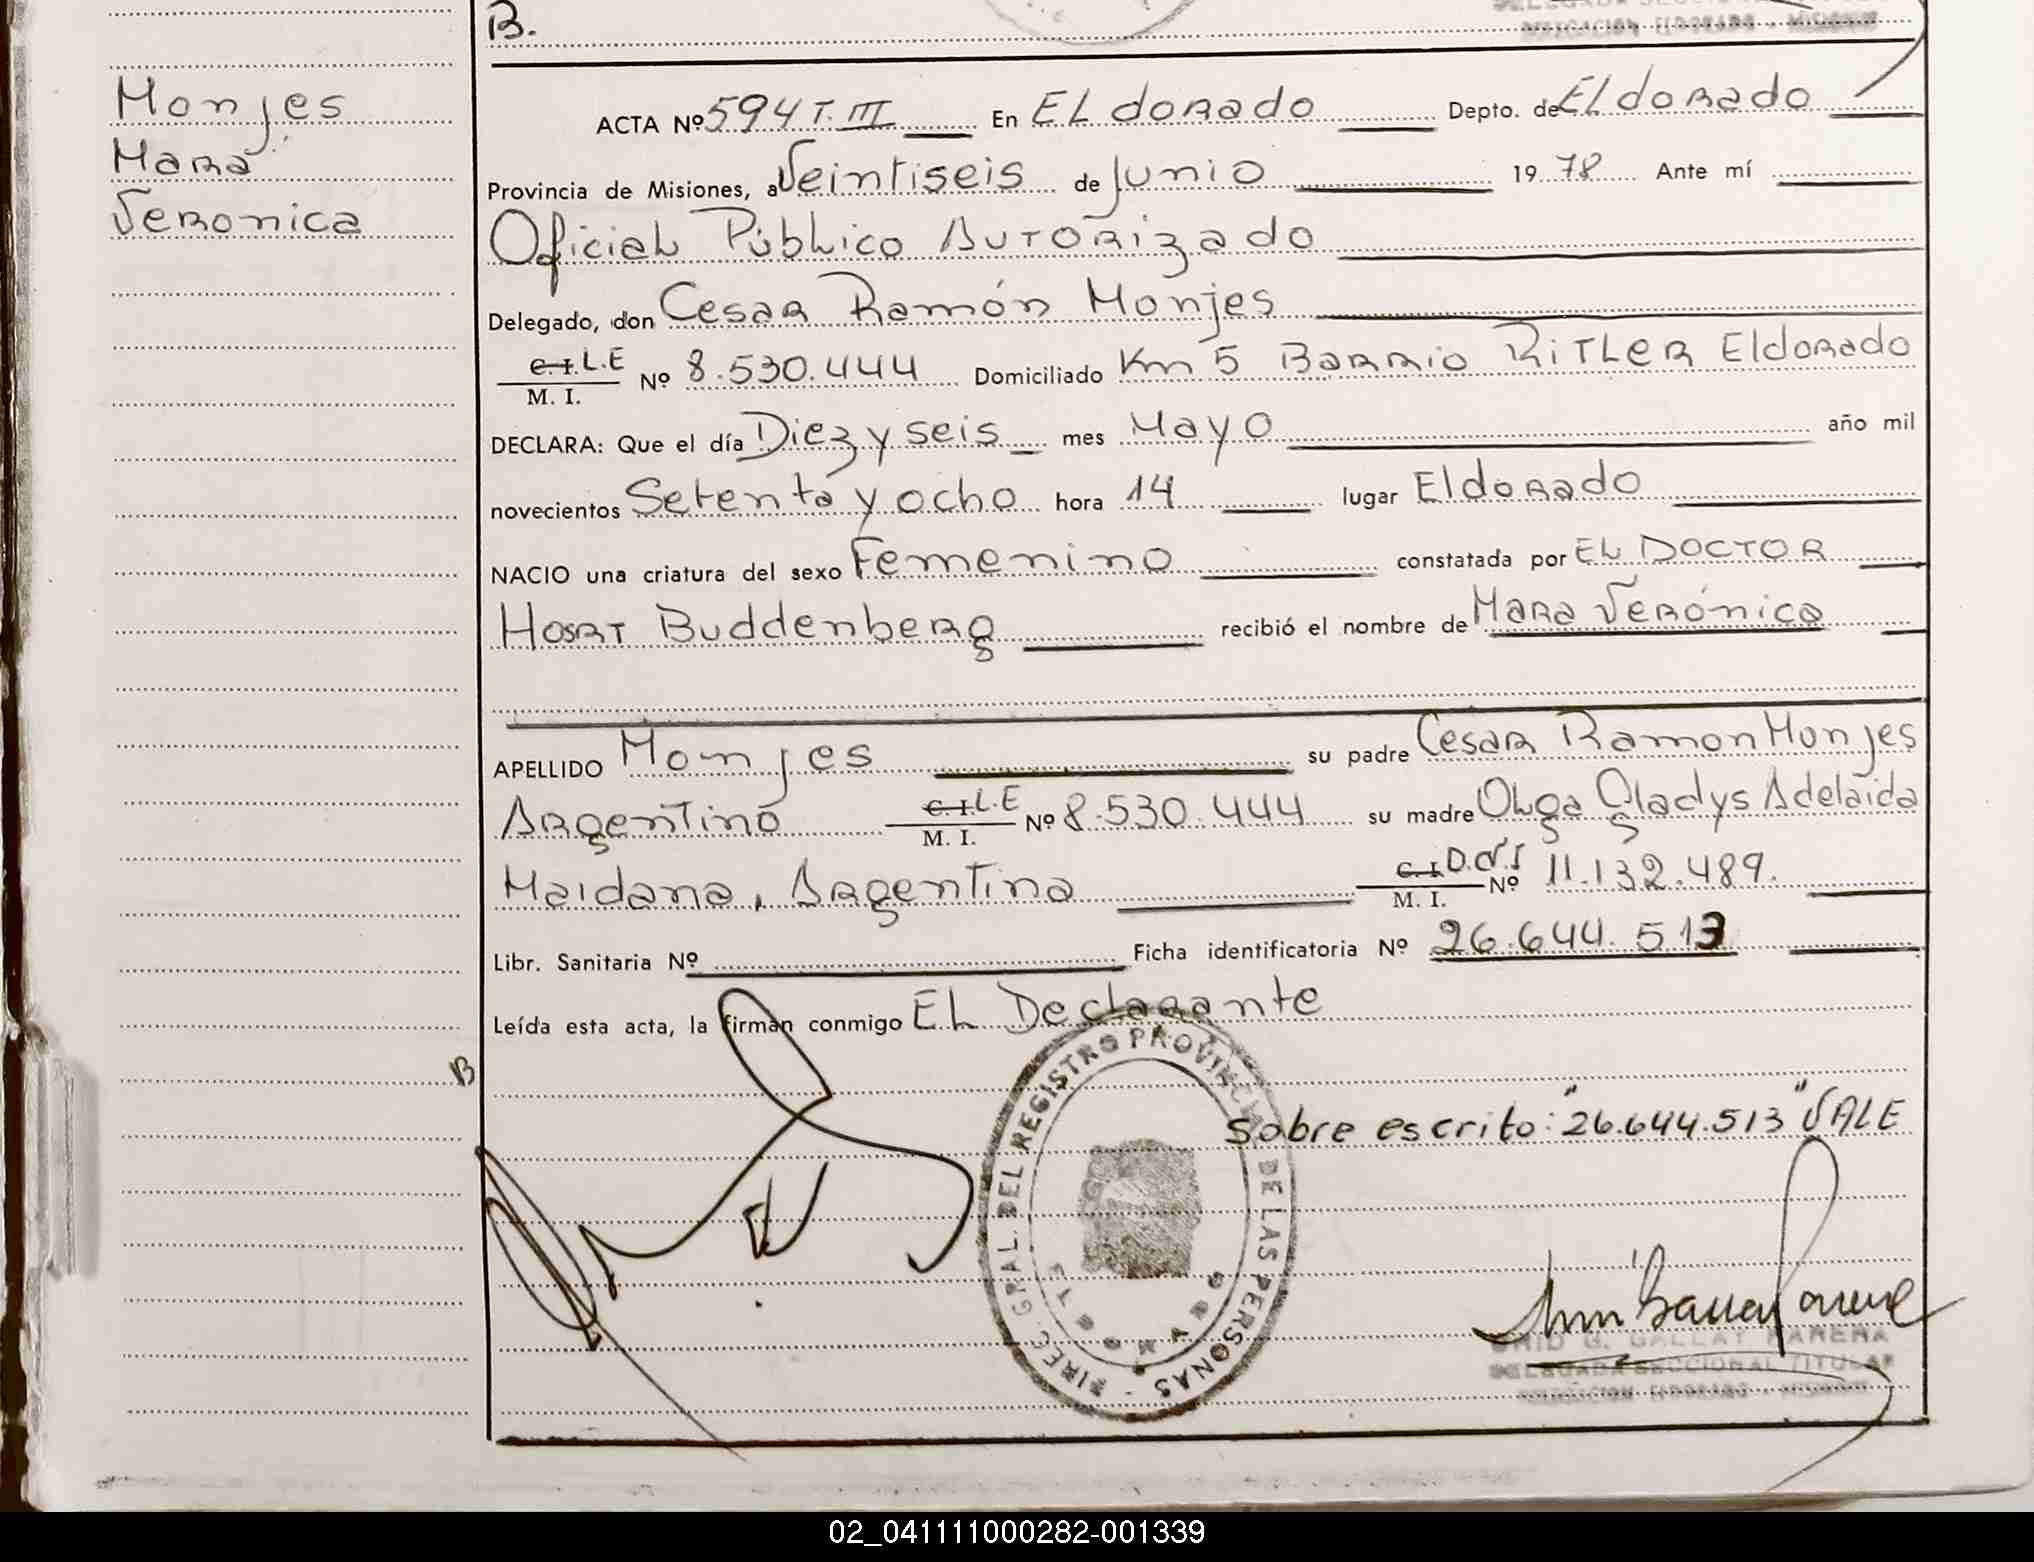 B.
Monjes
Mara
Veronica
ACTA Nº 594 T. III En ELdorado Depto. de Eldorado
Provincia de Misiones, a Veintiseis de Junio 19 78 Ante mí
Oficial Público Autorizado
Delegado, don Cesar Ramón Monjes
C.I. L.E
M. I. Nº 8.530.444 Domiciliado Km 5 Barrio RiTLER Eldorado
DECLARA: Que el día Diez y seis mes Mayo año mil
novecientos Setenta y ocho hora 14 lugar Eldorado
NACIO una criatura del sexo Femenino constatada por EL DOCTOR
Hosrt Buddenberg recibió el nombre de Mara Verónica
APELLIDO Monjes su padre Cesar Ramon Monjes
Argentino C.I. L.E M. I. Nº 8.530.444 su madre Olga Gladys Adelaida
Maidana, Argentina C.I. D.N.I M. I. Nº 11.132.489.
Libr. Sanitaria Nº Ficha identificatoria Nº 26.644.513
Leída esta acta, la firman conmigo EL Declarante
B
sobre escrito: "26.644.513" VALE
DIREC. GRAL. DEL REGISTRO PROVINCIAL DE LAS PERSONAS
ELDORADO
G. GALLAY PARERA
DELEGADA SECCIONAL TITULAR
DELEGACION ELDORADO - MISIONES
02_041111000282-001339